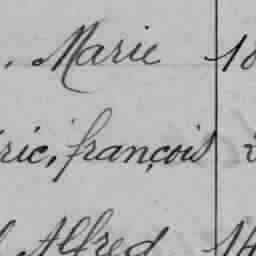 . Marie 18
ric, françois 2
l Alfred 14